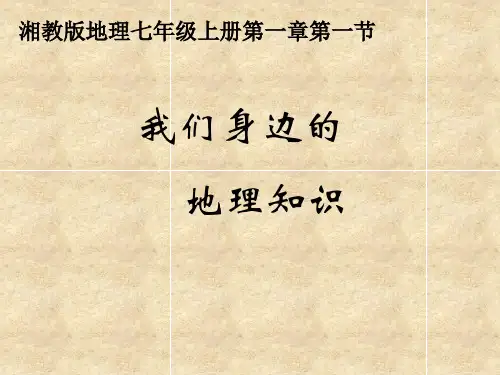 湘教版地理七年级上册第一章第一节
我们身边的
地理知识